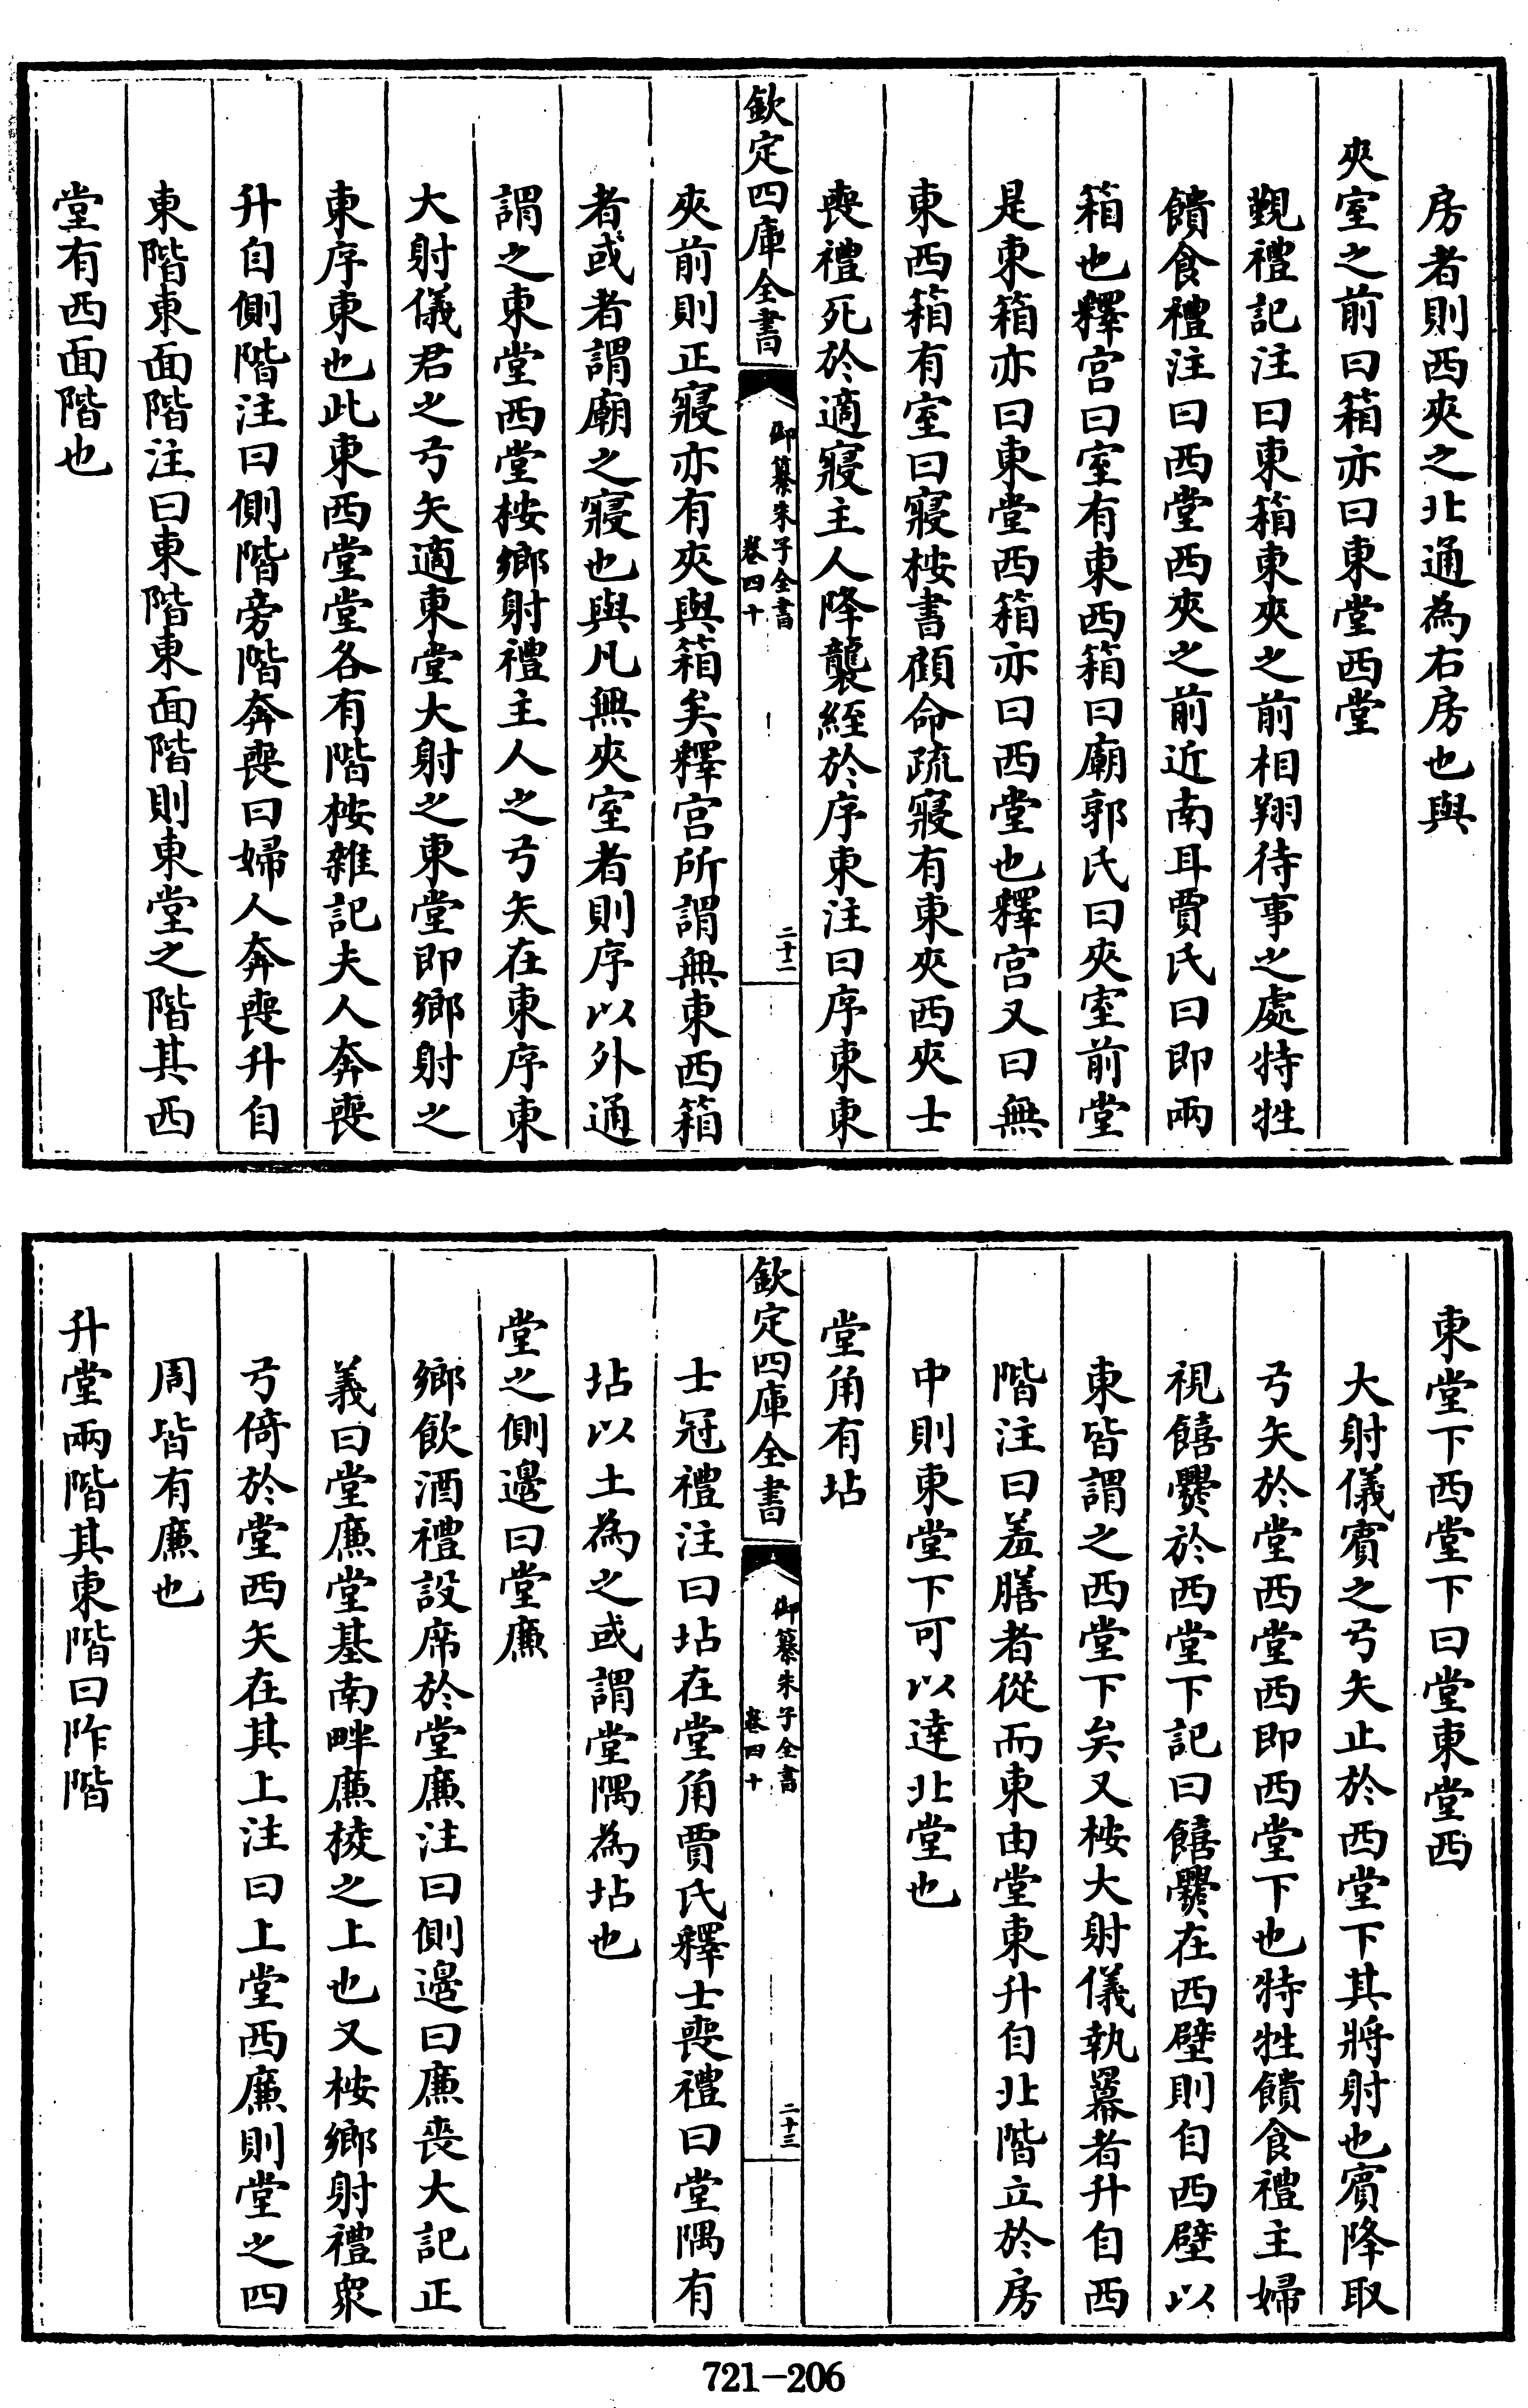 房者則西夾之北通為右房也與
夾室之前曰箱亦曰東堂西堂
覲禮記注曰東箱東夾之前相翔待事之處特牲
饋食禮注曰西堂西夾之前近南耳賈氏曰即兩
箱也釋宫曰室有東西箱曰廟郭氏曰夾室前堂
是東箱亦曰東堂西箱亦曰西堂也釋宫又曰無
東西箱有室曰寢桉書顧命疏寢有東夾西夾士
喪禮死於適寢主人降襲絰於序東注曰序東東
欽定四庫全書
御纂朱子全書
卷四十
二十二
夾前則正寢亦有夾與箱矣釋宫所謂無東西箱
者或者謂廟之寢也與凡無夾室者則序以外通
謂之東堂西堂桉鄉射禮主人之弓矢在東序東
大射儀君之弓矢適東堂大射之東堂即鄉射之
東序東也此東西堂堂各有階桉雜記夫人奔喪
升自側階注曰側階旁階奔喪曰婦人奔喪升自
東階東面階注曰東階東面階則東堂之階其西
堂有西面階也
東堂下西堂下曰堂東堂西
大射儀賓之弓矢止於西堂下其將射也賓降取
弓矢於堂西堂西即西堂下也特牲饋食禮主婦
視饎爨於西堂下記曰饎爨在西壁則自西壁以
東皆謂之西堂下矣又桉大射儀執羃者升自西
階注曰羞膳者從而東由堂東升自北階立於房
中則東堂下可以達北堂也
堂角有坫
欽定四庫全書
御纂朱子全書
卷四十
二十三
士冠禮注曰坫在堂角賈氏釋士喪禮曰堂隅有
坫以土為之或謂堂隅為坫也
堂之側邊曰堂廉
鄉飲酒禮設席於堂廉注曰側邊曰廉喪大記正
義曰堂廉堂基南畔廉棱之上也又桉鄉射禮衆
弓倚於堂西矢在其上注曰上堂西廉則堂之四
周皆有廉也
升堂兩階其東階曰阼階
721-206